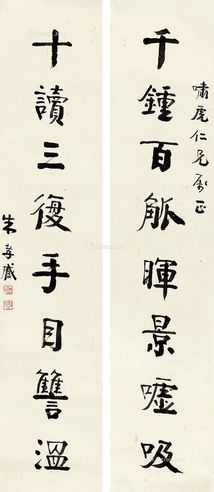 嘯虎仁兄屬正
千鍾百觚暉景噓吸
十讀三復手目讐溫
朱孝臧